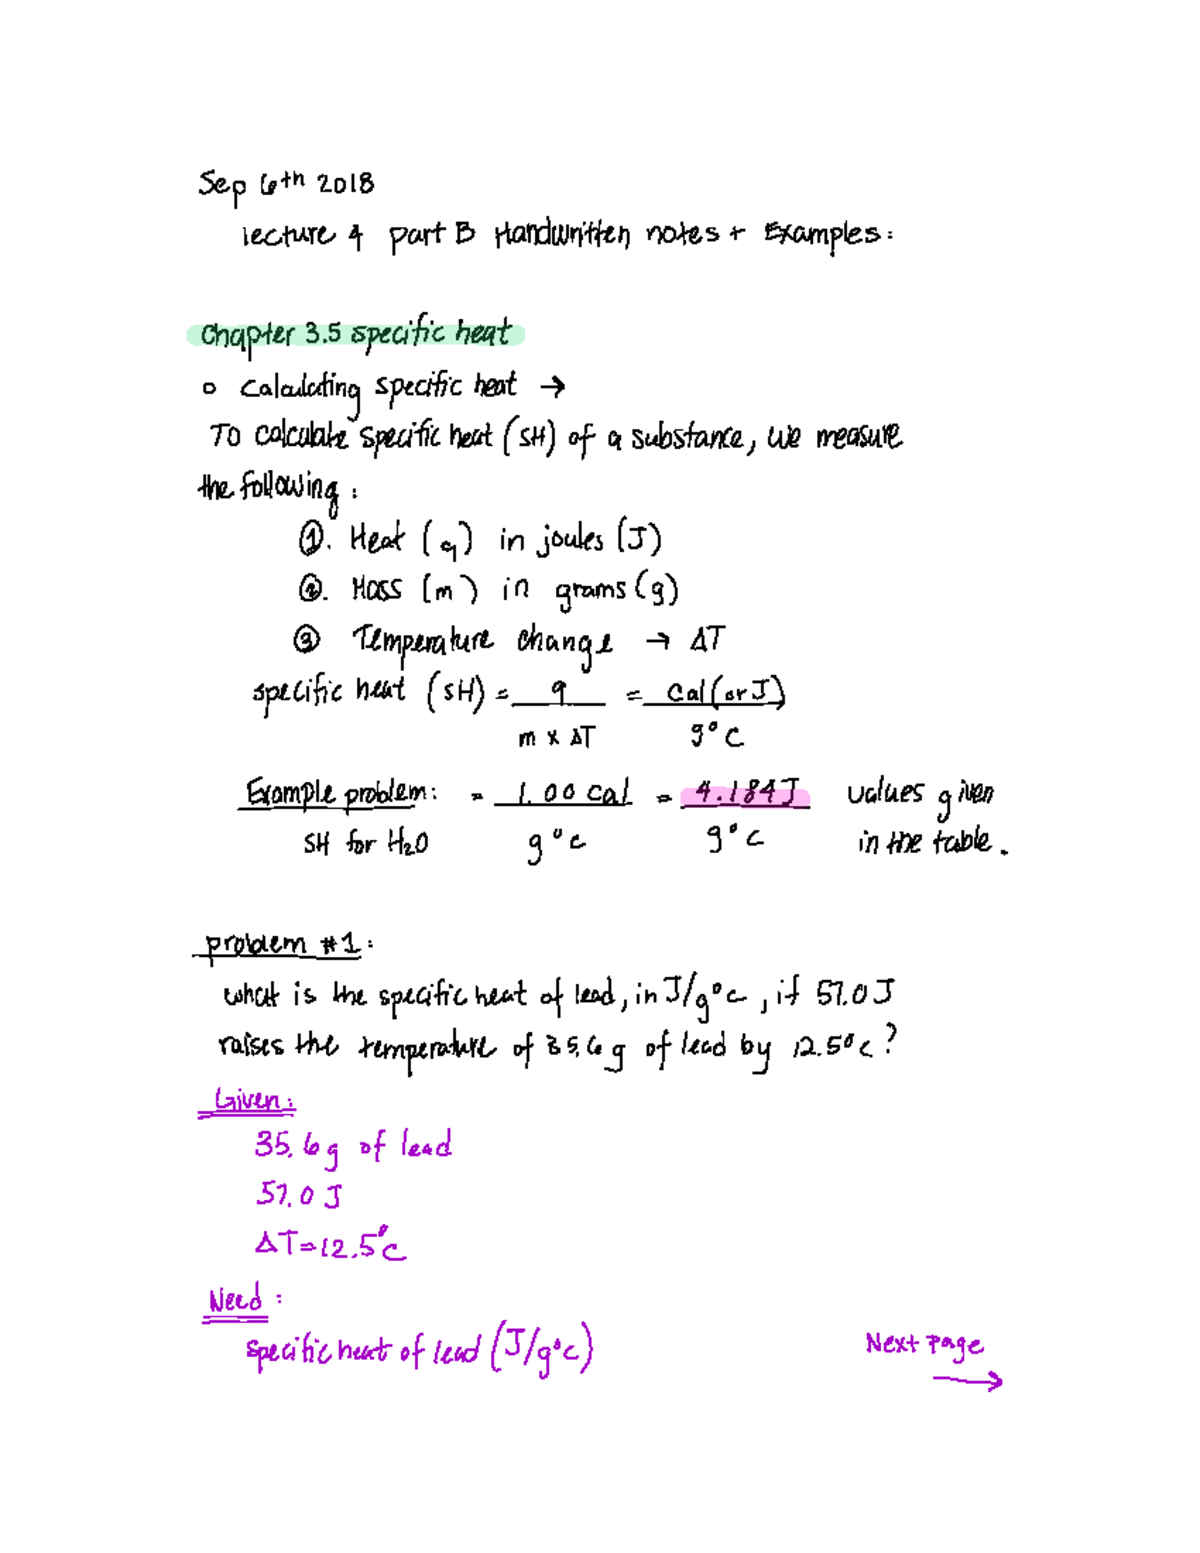 Sep 6th 2018
lecture 4 part B Handwritten notes + Examples:
Chapter 3.5 specific heat
o Calculating specific heat →
To calculate specific heat (SH) of a substance, we measure
the following:
①. Heat (q) in joules (J)
②. Mass (m) in grams (g)
③ Temperature change → ΔT
specific heat (SH) = q = Cal (or J)
m x ΔT g°C
Example problem: = 1.00 cal = 4.184 J values given
SH for H₂O g°c g°c in the table.
problem #1:
what is the specific heat of lead, in J/g°c, if 57.0 J
raises the temperature of 35.6 g of lead by 12.5°c?
Given:
35.6 g of lead
57.0 J
ΔT=12.5°c
Need:
specific heat of lead (J/g°c)
Next Page
→